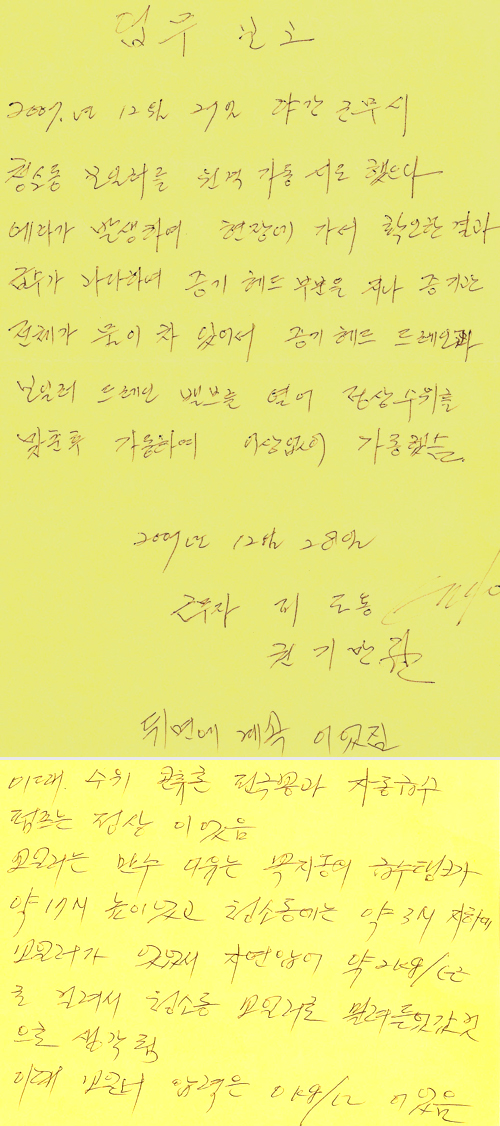 업무 보고
2009.년 12월 27일 야간 근무시
청소동 보일러를 원격 가동 시도 했으나
에라가 발생하여 현장에 가서 확인한 결과
급수가 과다하여 증기 헤드 부분을 지나 증기관
전체가 물이 차 있어서 증기 헤드 드레인과
보일러 드레인 밸브를 열어 정상수위를
맞춘후 가동하여 이상없이 가동했음.
2009년 12월 28일
근무자 이 도동
권기만
뒤면에 계속 이었짐
이때. 수위 콘츄롤 전극봉과 자동급수
펌프는 정상 이었음
보일러는 만수 이유는 복지동의 급수탱크가
약 17시 높이 있고 청소동에는 약 3시 지하에
보일러가 있어서 자연압이 약 2kg/
로 걸려서 청소동 보일러로 밀려들었갔것
으로 생각됨
이때 보일러 압력은 0kg/ 이었음